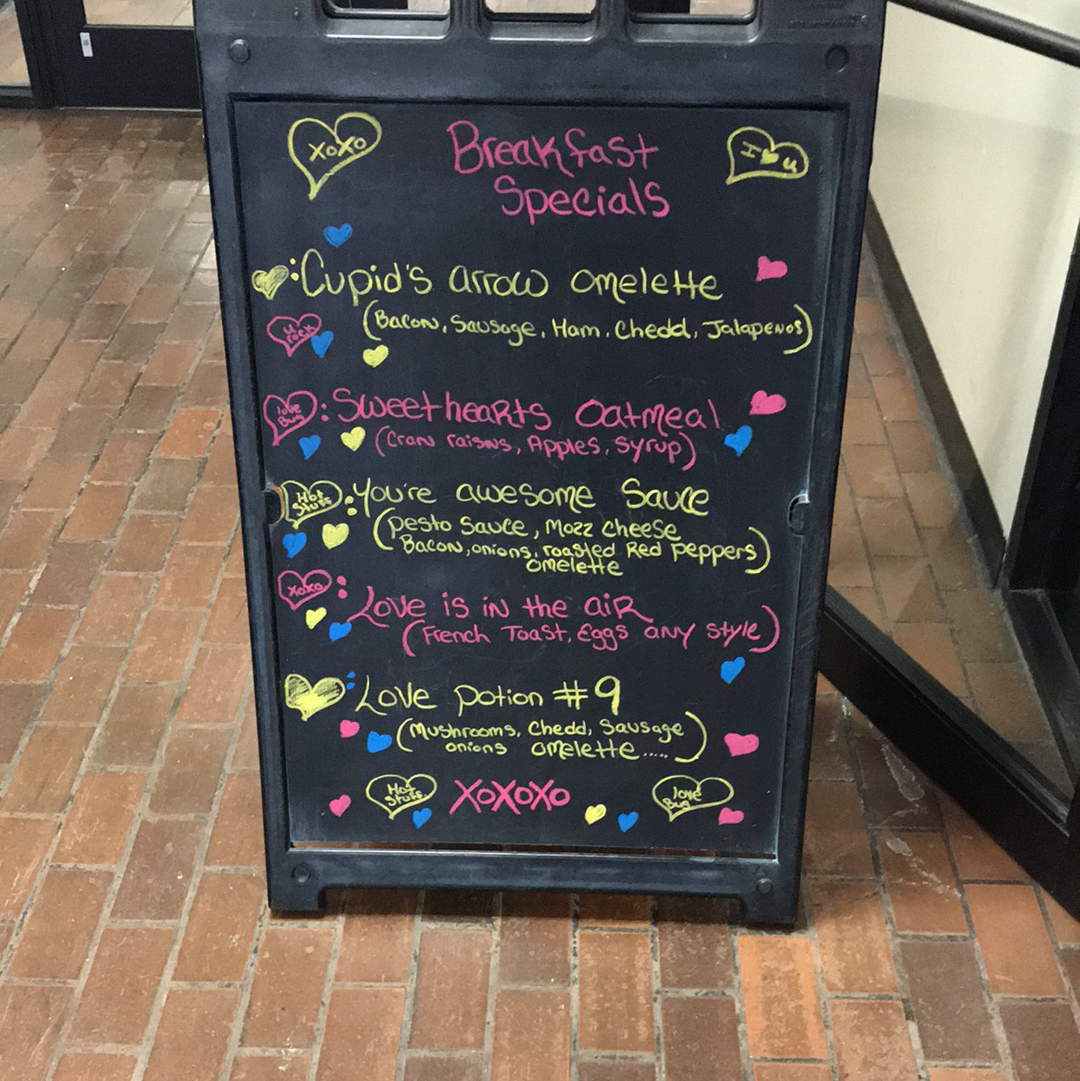 XoXo
Breakfast
I ♥ u
Specials
Cupid's arrow omelette
u rock
(Bacon, Sausage, Ham, Chedd, Jalapenos)
love Bug
: Sweethearts Oatmeal
(Cran raisns, Apples, Syrup)
Hot Stuff
: You're awesome Sauce
(pesto Sauce, Mozz cheese
Bacon, onions, roasted Red peppers)
omelette
XoXo
: Love is in the air
(French Toast, Eggs any style)
: Love potion #9
(Mushrooms, Chedd, Sausage
onions omelette.....)
Hot Stuff
XoXoXo
love Bug